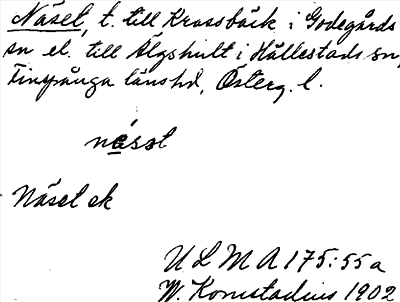 Näset, t. till Krassbäck i Godegårds
sn el. till Älgshult i Hällestads sn,
Finspånga länshd, Österg. l.
näsət
Näset ek
ULMA 175:55a
W. Kornstadius 1902